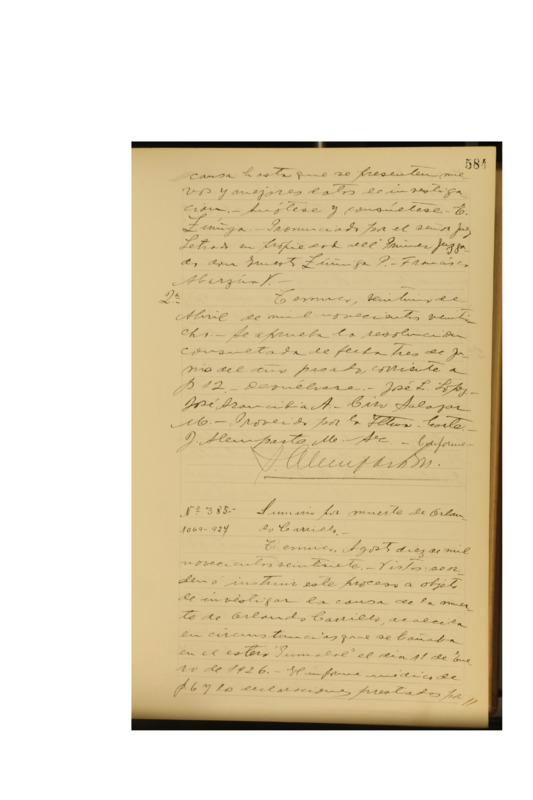 584
causa hasta que se presenten nue
vos y mejores datos de investiga
cion.- Anótese y consúltese. E.
Zúñiga.- Pronunciado por el señor Juez
Letrado en propiedad del Primer Juzga
do don Ernesto Zúñiga P.- Francisco
V.-
2a
Temuco, de
Abril de mil novecientos veinti
ocho.- Se aprueba la resolución
consultada de fecha tres de
del pasado, corriente a
f 12.- Devuélvase.- José L. López.-
José Arancibia A.- Ciro Salazar
M.- Proveido por la Iltma. Corte.-
J. Alemparte M.- Sec.- Conforme-
J. Alemparte M.
Nº 385.- Sumario por muerte de Orlan-
do Carrillo.-
Temuco, Agosto diez de mil
novecientos veintisiete.- Vistos: se or-
denó instruir este proceso a objeto
de investigar la causa de la muer
te de Orlando Carrillo, acaecida
en circunstancias que se bañaba
en el estero el dia 11 de Ene
ro de 1926.- El informe médico de
f 6 y las declaraciones prestadas por